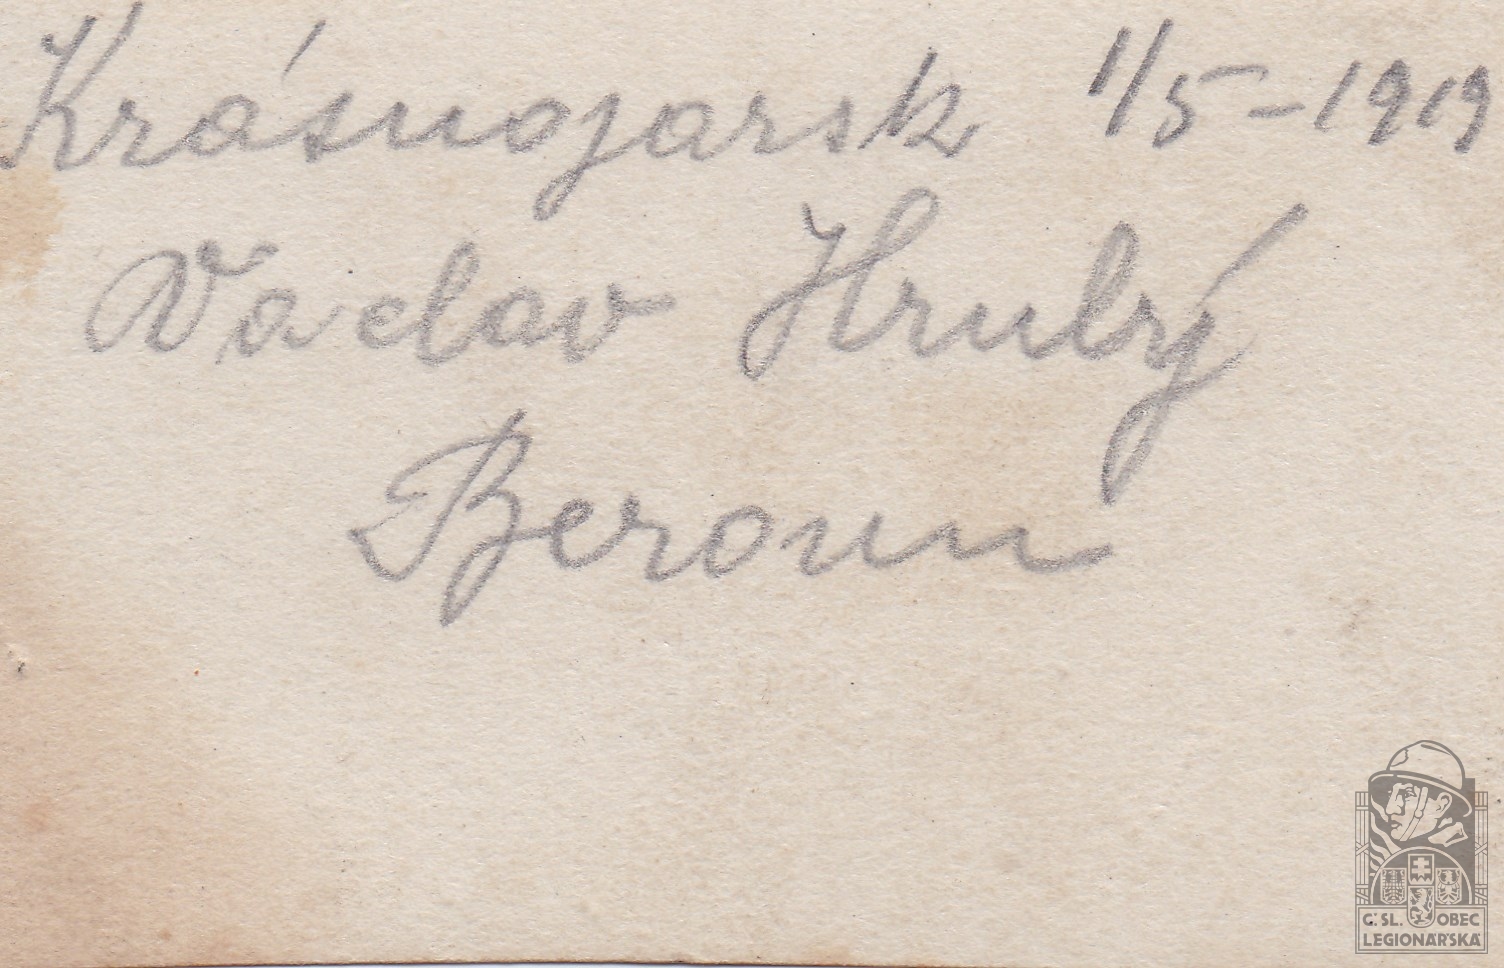 Krásnojarsk 1/5-1919
Vaclav Hrubý
Beroun
Č. SL. OBEC
LEGIONÁŘSKÁ